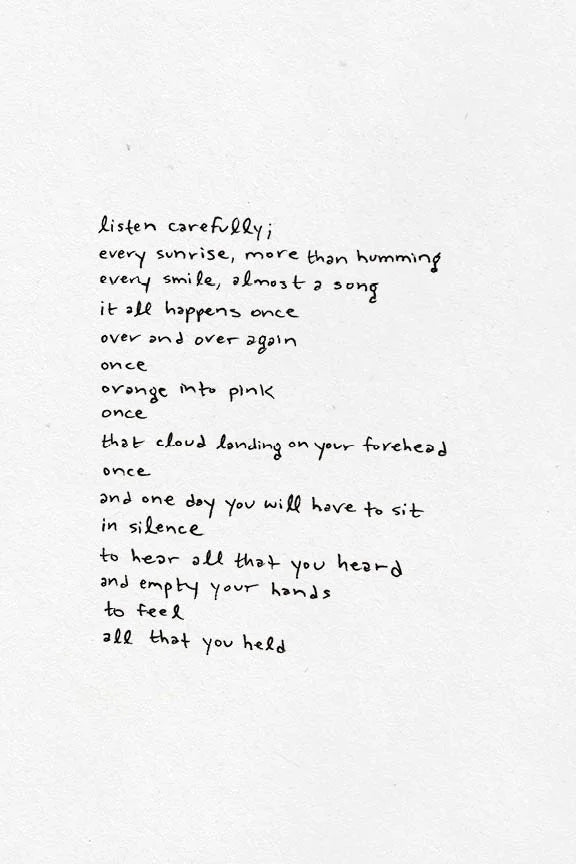 listen carefully;
every sunrise, more than humming
every smile, almost a song
it all happens once
over and over again
once
orange into pink
once
that cloud landing on your forehead
once
and one day you will have to sit
in silence
to hear all that you heard
and empty your hands
to feel
all that you held